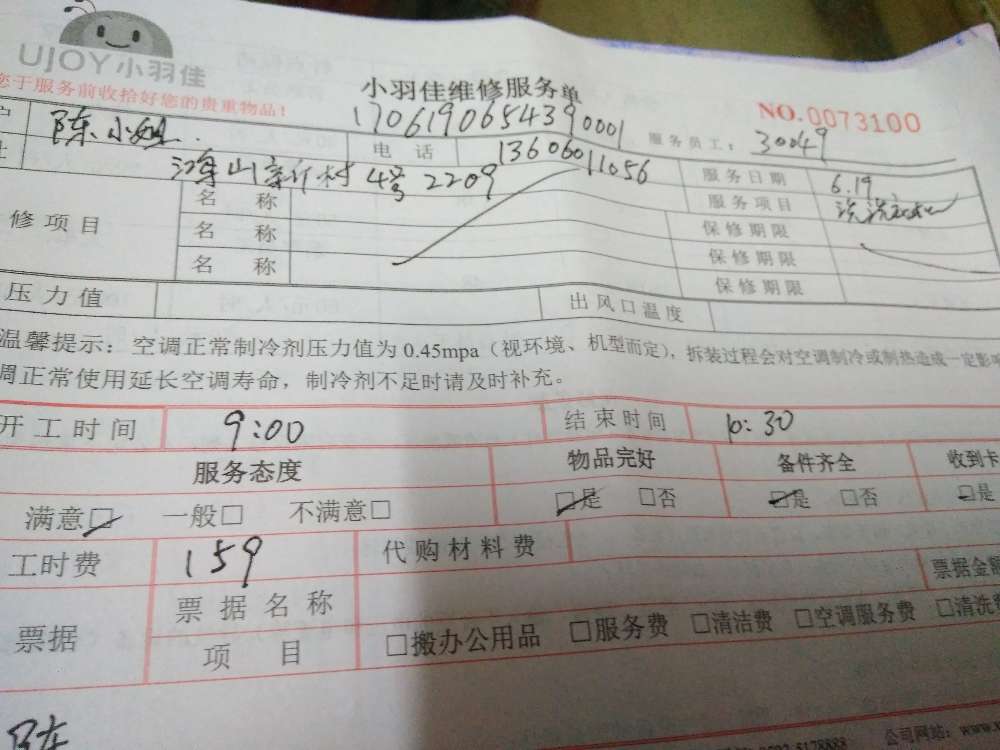 UJOY小羽佳
您于服务前收拾好您的贵重物品!
小羽佳维修服务单
NO.0073100
1706190654390001
服务员工: 30049
户 陈小姐
电话 13606011056
服务日期 6.19
址 山 村 4号 2209
服务项目 洗洗衣机
修项目 名称 保修期限
名称 保修期限
名称 保修期限
压力值 出风口温度
温馨提示:空调正常制冷剂压力值为 0.45mpa(视环境、机型而定),拆装过程会对空调制冷或制热造成一定影响
调正常使用延长空调寿命,制冷剂不足时请及时补充。
开工时间 9:00 结束时间 10:30
服务态度 物品完好 备件齐全 收到卡
满意□ 一般□ 不满意□ □是 □否 □是 □否 □是
工时费 159 代购材料费
票据 票据名称 票据金额
项目 □搬办公用品 □服务费 □清洁费 □空调服务费 □清洗
陈
公司网站:www.